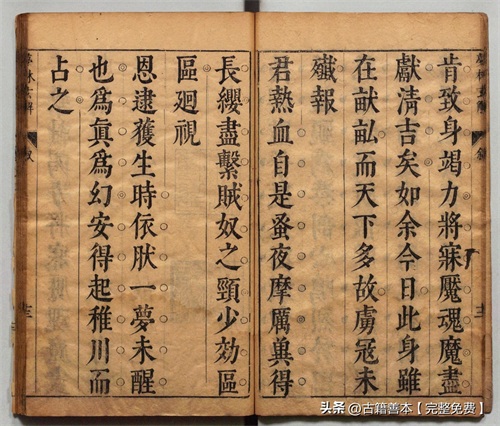 肯致身竭力將寐魘魂魔盡
獻清吉矣如余今日此身雖
在畎畆而天下多故虜寇未
殲報
君熱血自是蚤夜摩厲兾得
長纓盡繫賊奴之頸少効區
區廻視
恩逮獲生時依肰一夢未醒
也爲眞爲幻安得起稚川而
占之
头条 @古籍善本【完整免费】